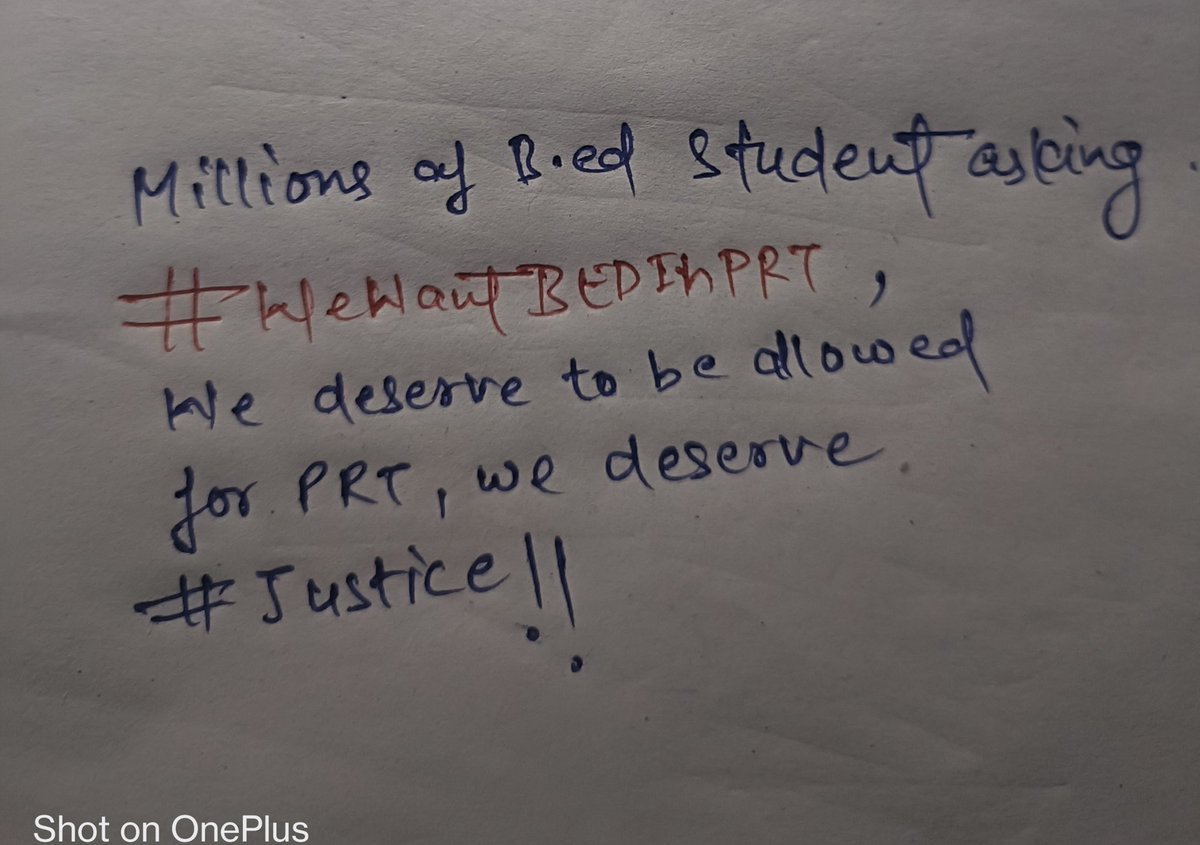 Millions of B.ed student asking.
#WeWantBEDInPRT,
We deserve to be allowed
for PRT, we deserve.
#Justice!!
Shot on OnePlus